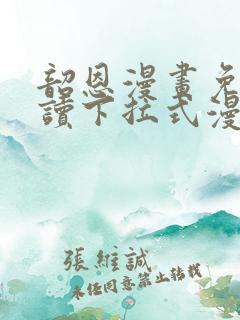 韶恩漫畫免
讀下拉式漫
張維誠
未經同意禁止轉載